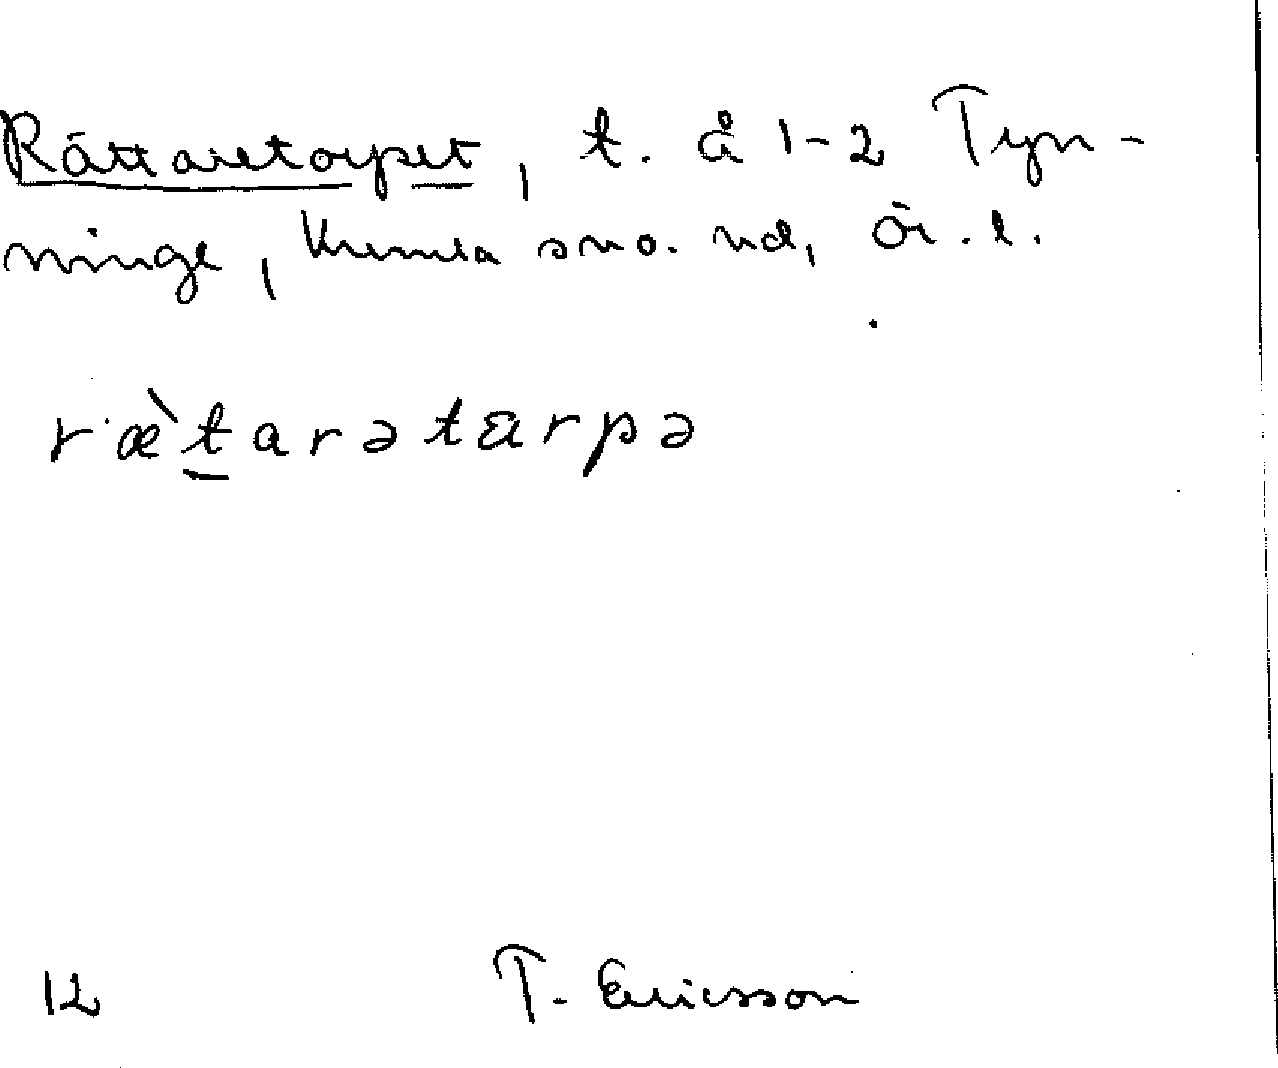 Rättaretorpet, t. å 1-2 Tyn-
ninge, Kumla sno. hd, Ör. l.
ræ̀t̠arətarpə
12 T. Ericsson